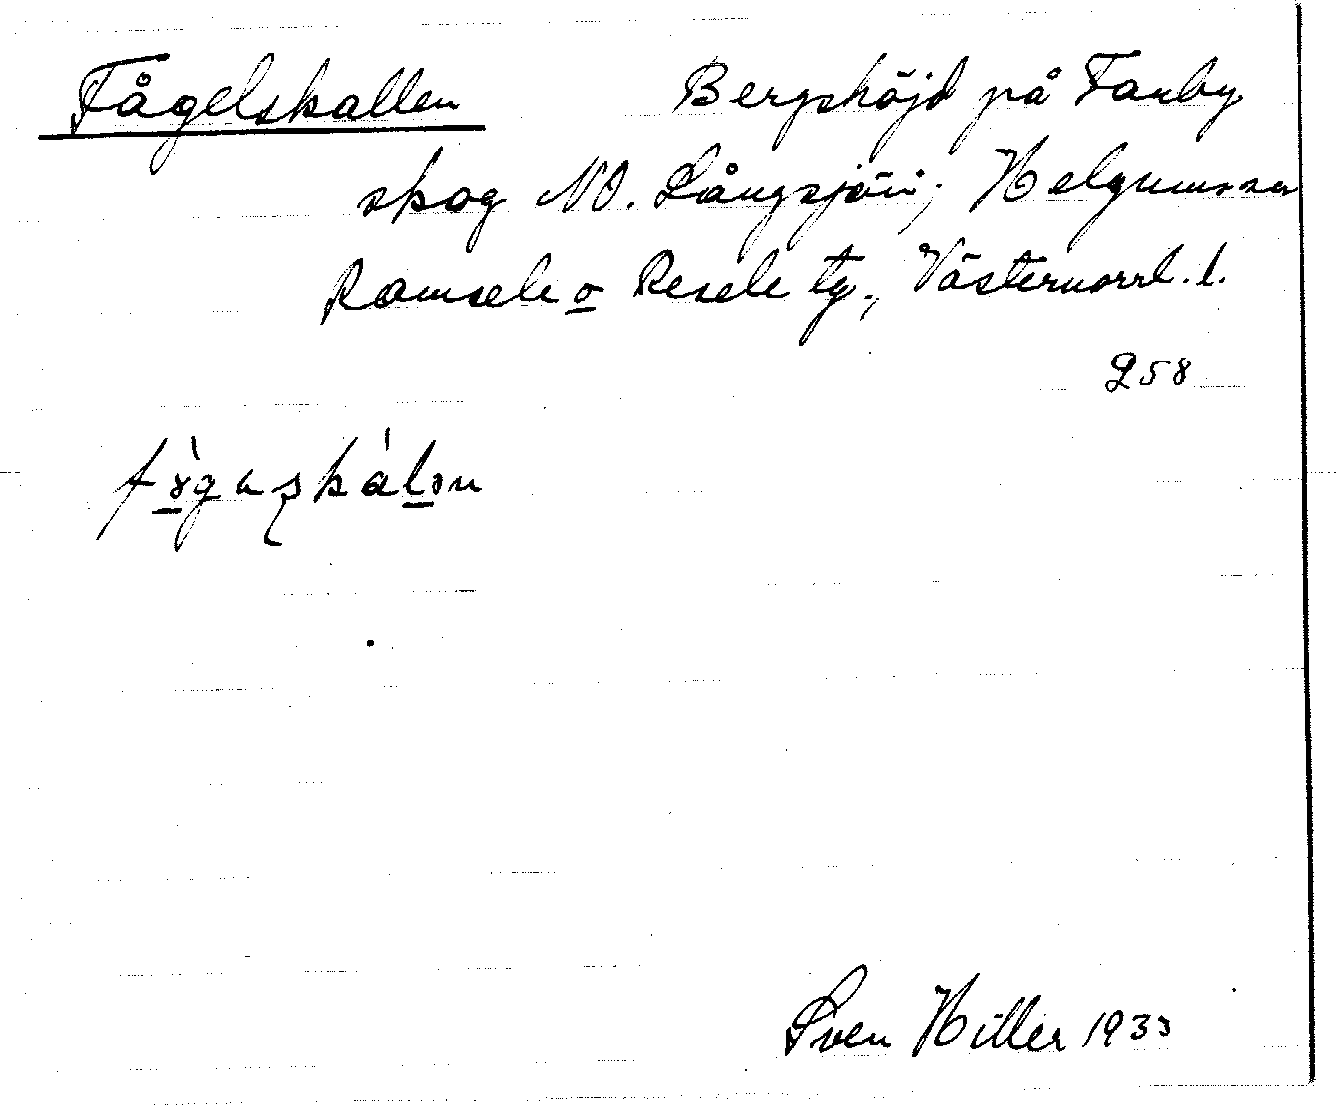 Fågelskallen Bergshöjd på Tarby
skog NO. Långsjön; Helgums sn
Ramsele o Resele tg., Västernorrl. l.
258
Sven Hiller 1933